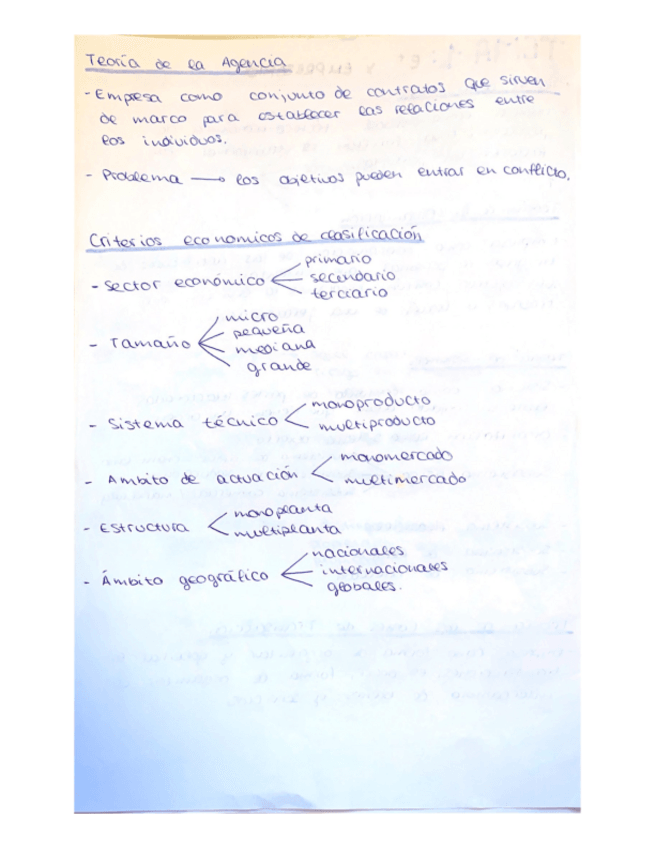 Teoría de la Agencia
- Empresa como conjunto de contratos que sirven
de marco para establecer las relaciones entre
los individuos.
- Problema → los objetivos pueden entrar en conflicto.
Criterios economicos de clasificación
- Sector económico
primario
secundario
terciario
- Tamaño
micro
pequeña
mediana
grande
- Sistema técnico
monoproducto
multiproducto
- Ambito de actuación
monomercado
multimercado
- Estructura
monoplanta
multiplanta
- Ámbito geográfico
nacionales
internacionales
globales.